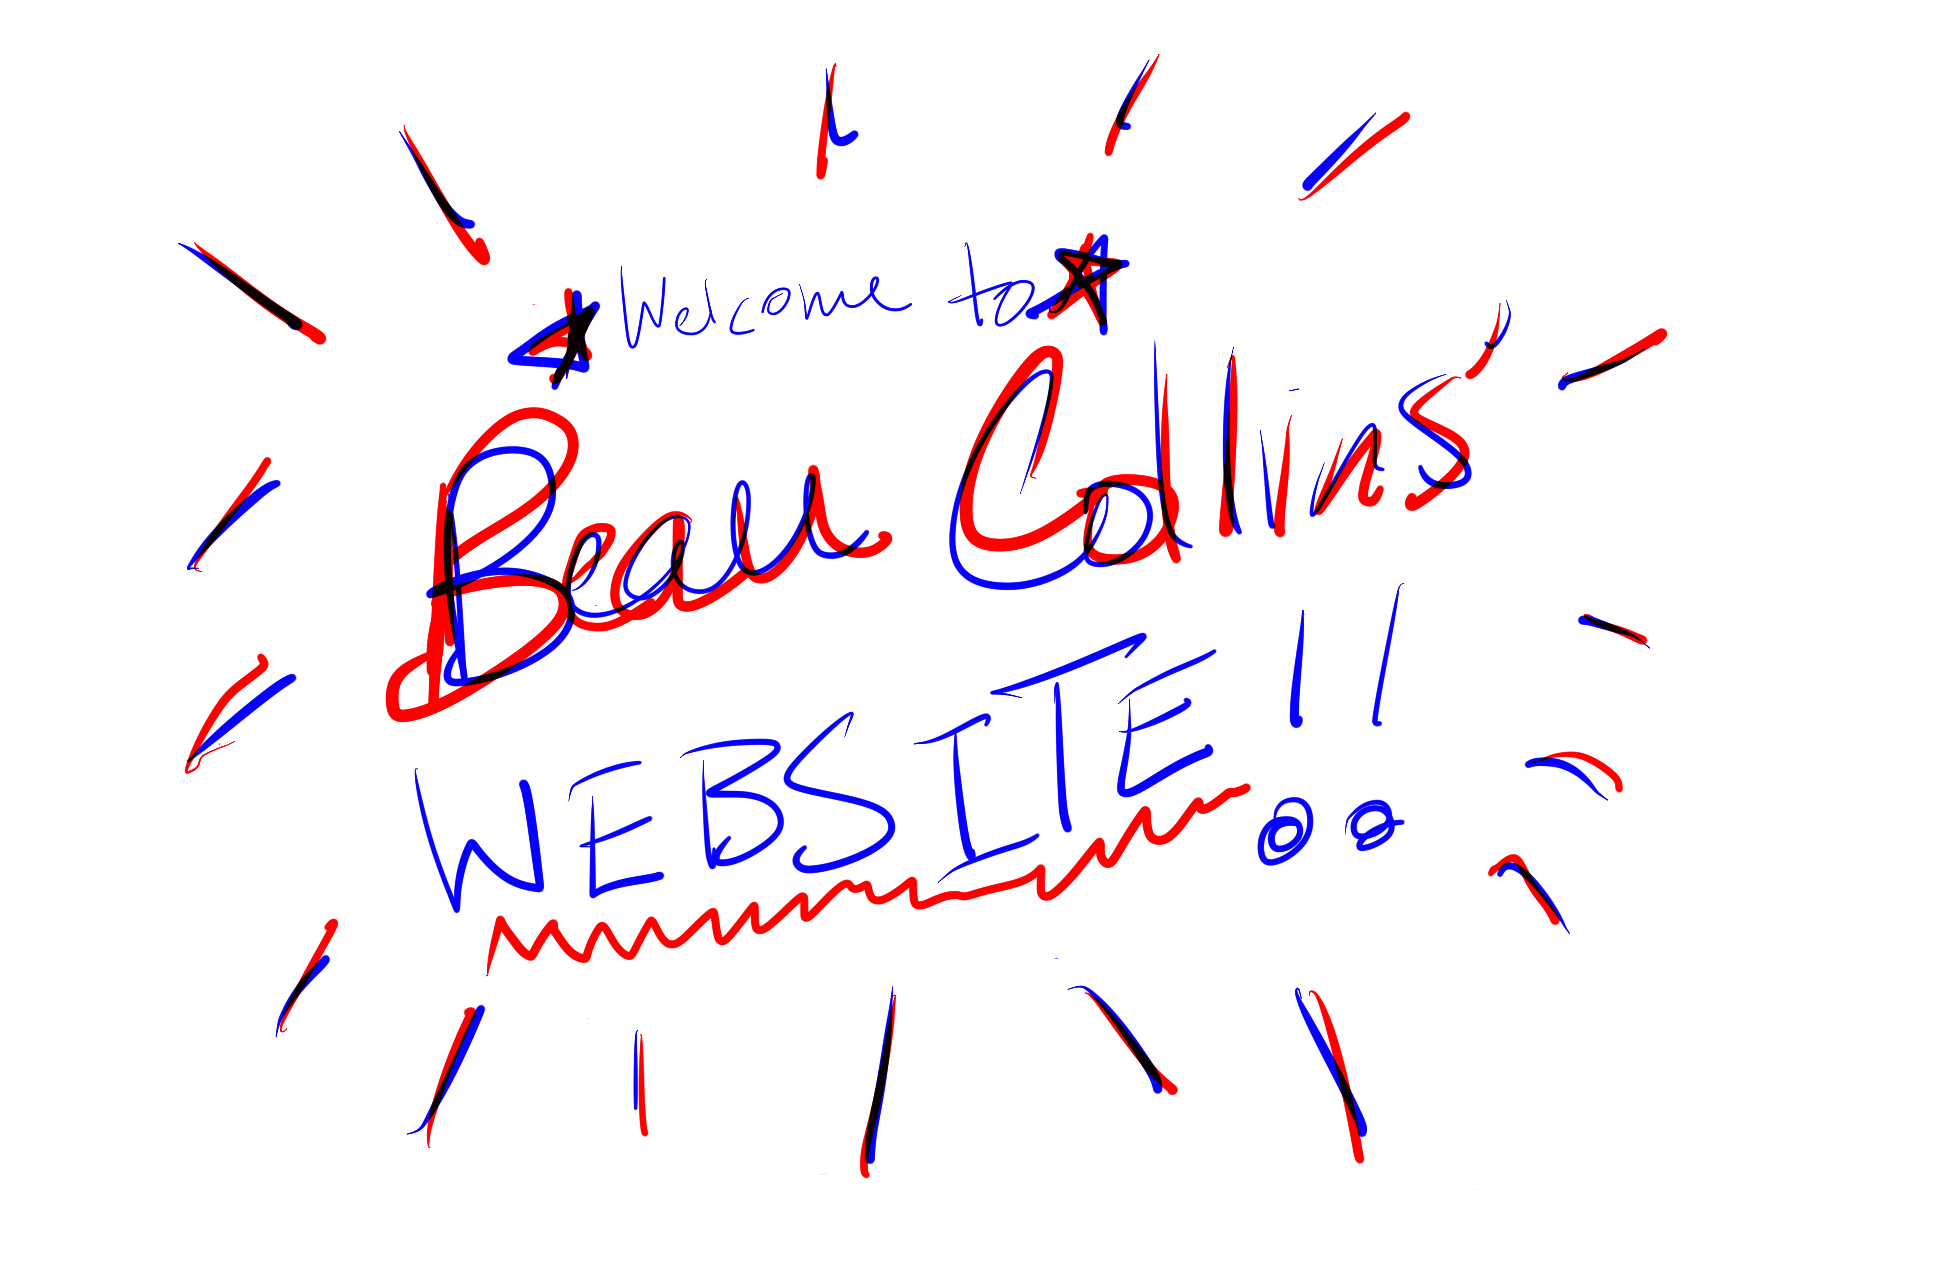 Welcome to
Beau Collins'
WEBSITE!!